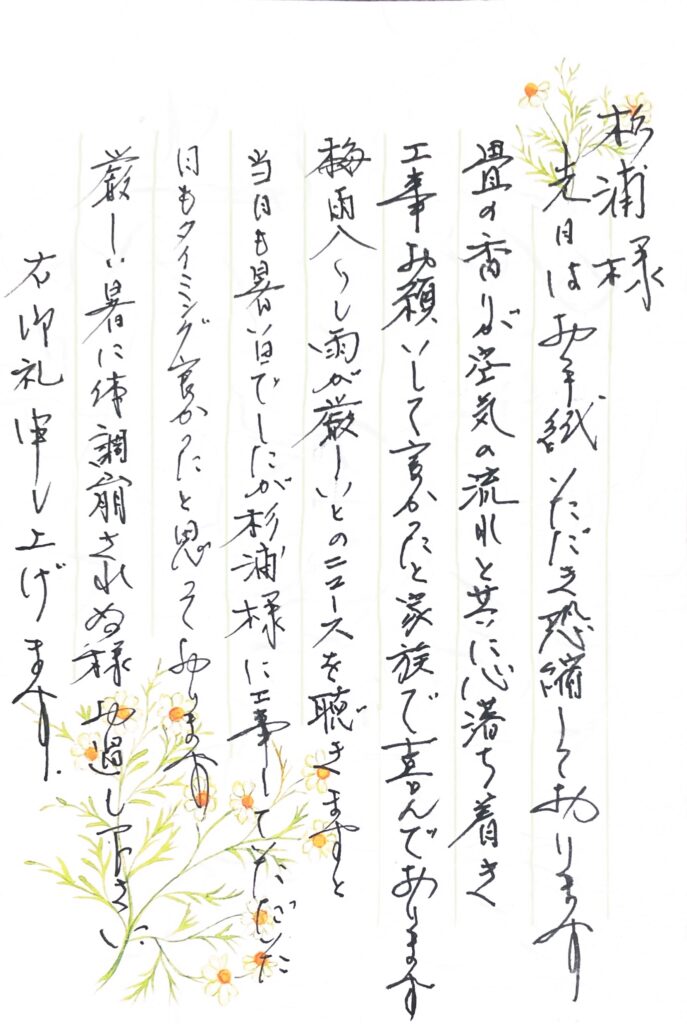 杉浦様
先日はお手紙いただき恐縮しております
畳の香りが空気の流れと共に心落ち着き
工事お願いして良かったと家族で喜んでおります
梅雨入りし雨が厳しいとのニュースを聴きますと
当日も暑い日でしたが杉浦様に工事していただいた
日もタイミング良かったと思っております
厳しい暑に体調崩されぬ様お過し下さい.
右御礼申し上げます.